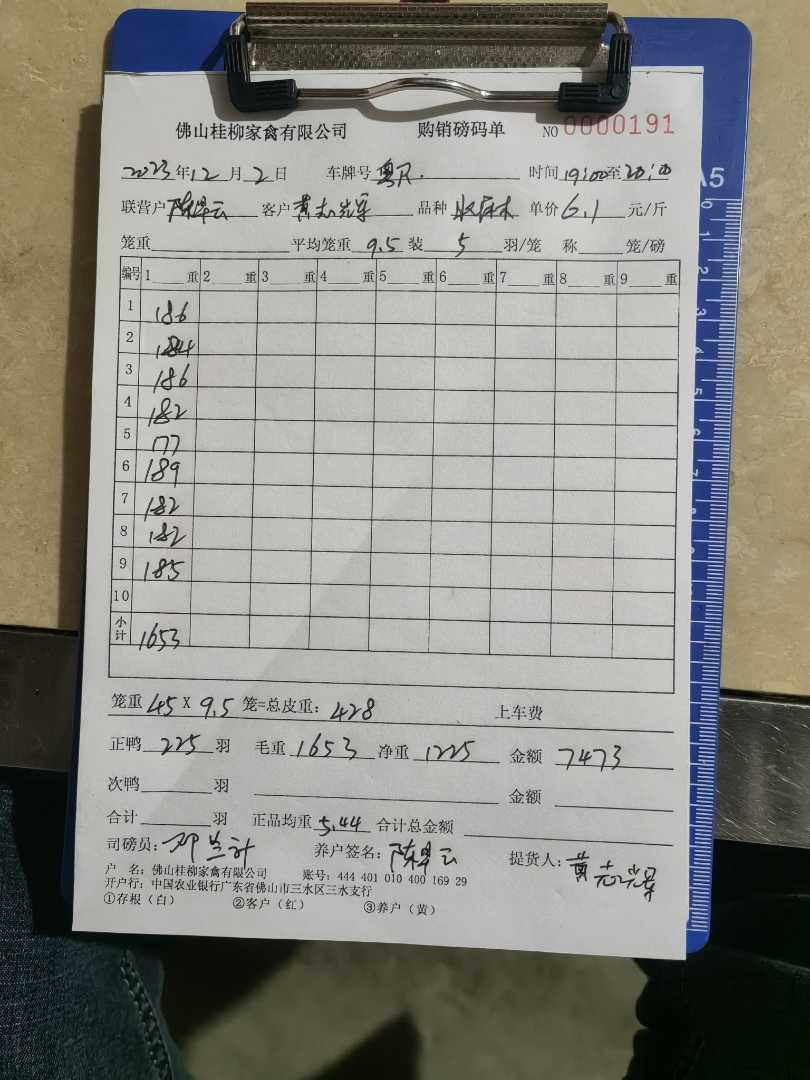 佛山桂柳家禽有限公司 购销磅码单 NO 0000191
2023年12月2日 车牌号 粤R. 时间 19:00至20:10
联营户 陈 云 客户 黄志 品种 麻 单价 6.1 元/斤
笼重 平均笼重 9.5 装 5 羽/笼 称 笼/磅
编号 1 重 2 重 3 重 4 重 5 重 6 重 7 重 8 重 9 重
1 186
2 184
3 186
4 182
5 177
6 189
7 182
8 182
9 185
10
小计 1653
笼重 45 X 9.5 笼=总皮重: 428 上车费
正鸭 225 羽 毛重 1653 净重 1225 金额 7473
次鸭 羽 金额
合计 羽 正品均重 5.44 合计总金额
司磅员: 邓兰计 养户签名: 陈 云 提货人: 黄志
户 名: 佛山桂柳家禽有限公司 账号: 444 401 010 400 169 29
开户行: 中国农业银行广东省佛山市三水区三水支行
①存根（白） ②客户（红） ③养户（黄）
A5
0 1 2 3 4 5 6 7